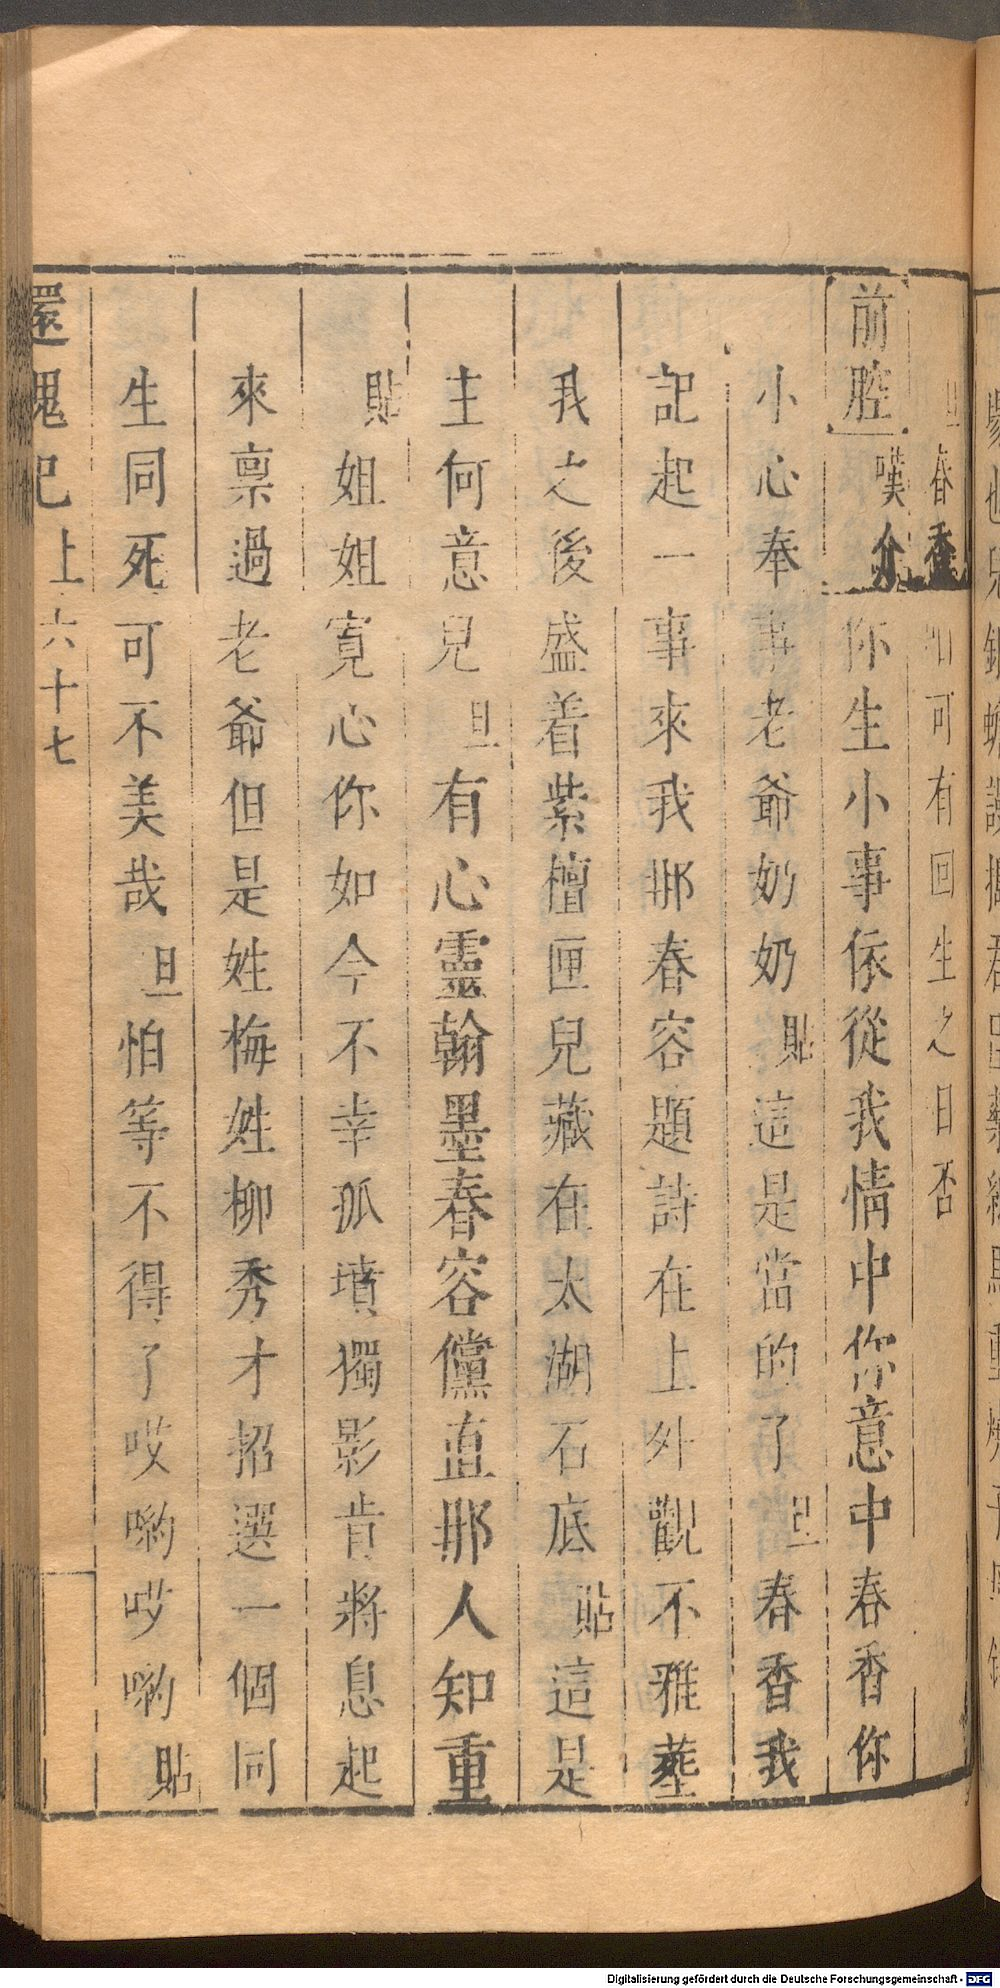 旦春香咱可有回生之日否
前腔嘆介你生小事依從我情中你意中春香你
小心奉事老爺奶奶貼這是當的了旦春香我
記起一事來我那春容題詩在上外觀不雅塟
我之後盛着紫檀匣兒藏在太湖石底貼這是
主何意兒旦有心靈翰墨春容儻直那人知重
貼姐姐寬心你如今不幸孤墳獨影肯將息起
來禀過老爺但是姓梅姓柳秀才招選一個同
生同死可不美哉旦怕等不得了哎喲哎喲貼
還魂記上六十七
Digitalisierung gefördert durch die Deutsche Forschungsgemeinschaft - DFG